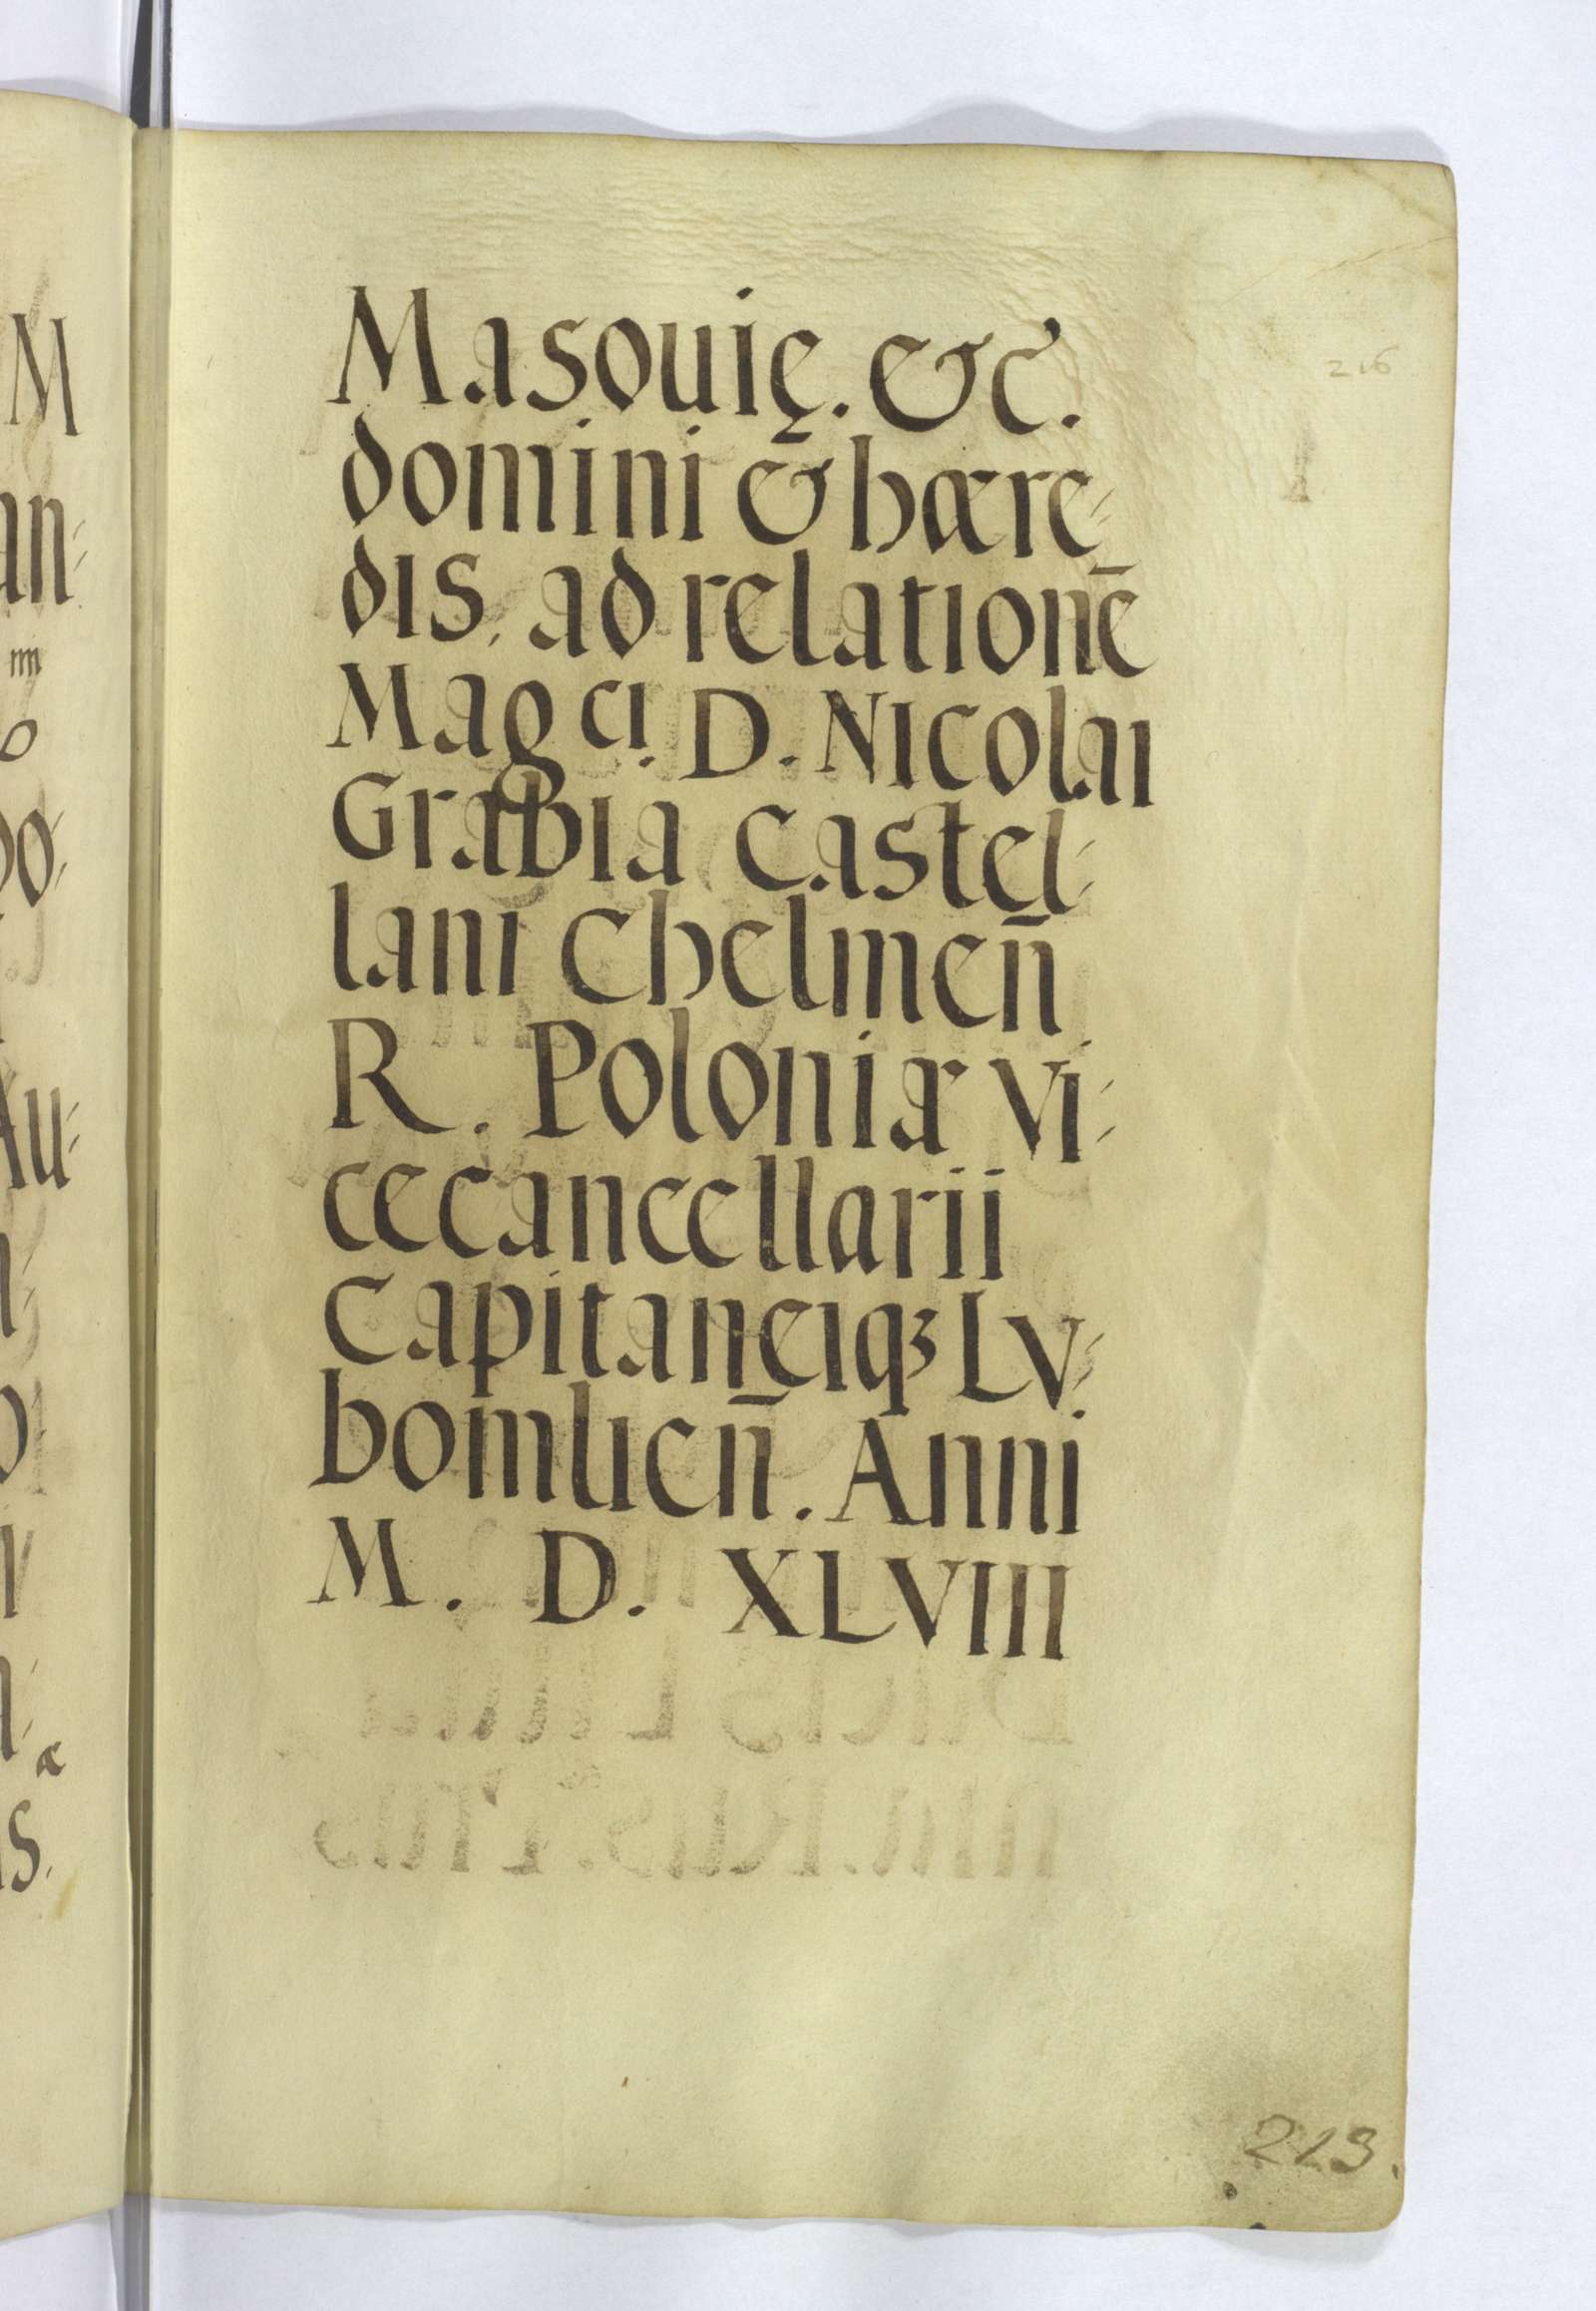 216
Masouię. &c.
domini & hære-
dis. ad relationē
Magci. D. Nicolai
Grabia Castel-
lani Chelmen̄
R. Poloniæ Vi-
cecancellarii
Capitaneiqꝫ Lv-
bomlien̄. Anni
M. D. XLVIII
213.